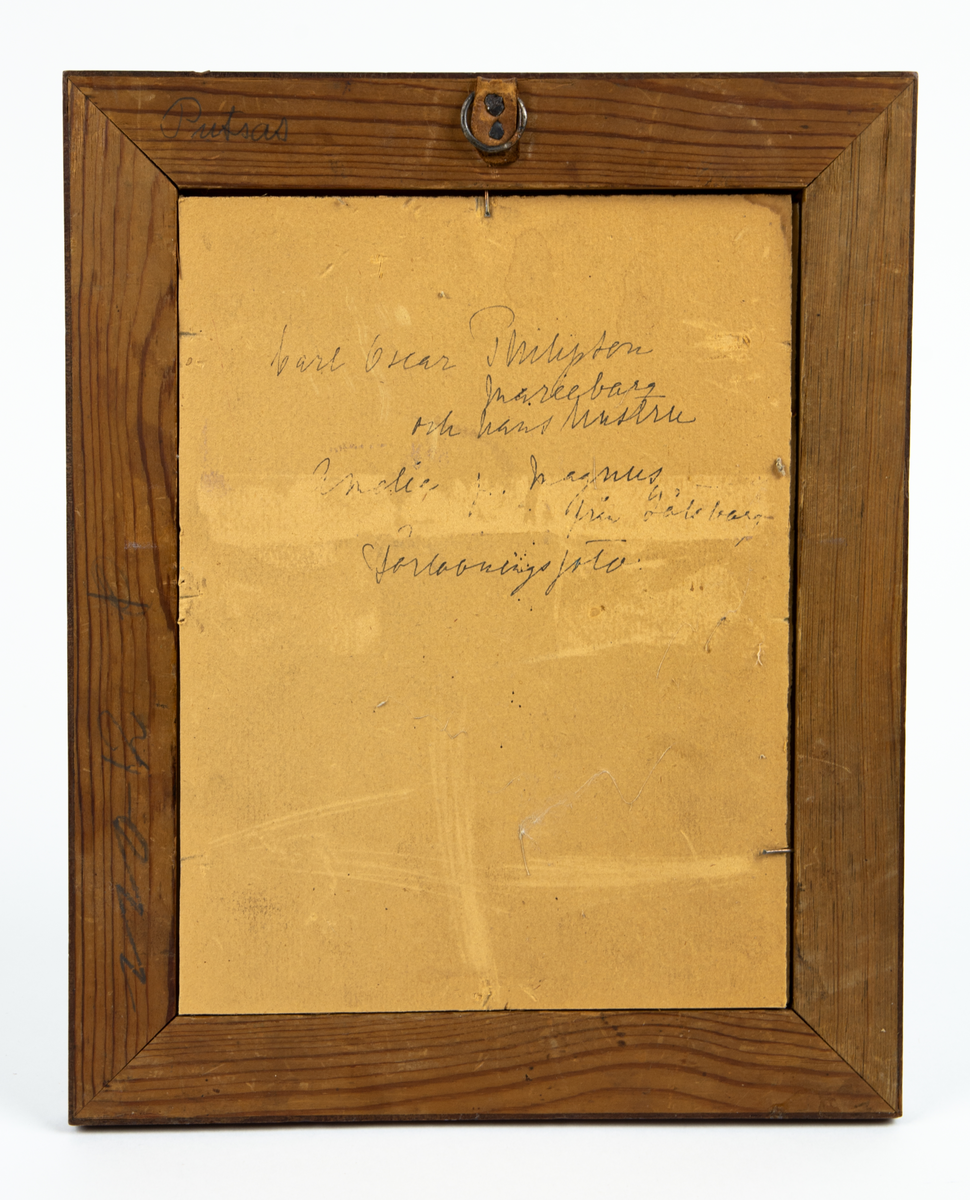 Putsas
Carl Oscar Philipson
Marieberg
och hans hustru
Amelie f. Magnus
från Göteborg
Förlovningsfoto.